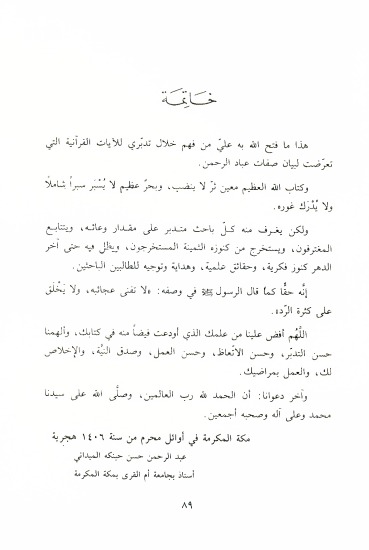 خَاتِمَة
هذا ما فتح الله به عليّ من فهم خلال تدبّري للآيات القرآنية التي
تعرّضت لبيان صفات عباد الرحمن.
وكتاب الله العظيم معين ثرّ لا ينضب، وبحرٌ عظيم لا يُسْبَر سبراً شاملًا
ولا يُدْرَك غوره.
ولكن يغرف منه كلّ باحث متدبر على مقدار وعائه، ويتتابع
المغترفون، ويستخرج من كنوزه الثمينة المستخرجون، ويظل فيه حتى آخر
الدهر كنوز فكرية، وحقائق علمية، وهداية وتوجيه للطالبين الباحثين.
إنّه حقًّا كما قال الرسول ﷺ في وصفه: «لا تفنى عجائبه، ولا يَخْلَق
على كثرة الردّ».
اللَّهُم أفض علينا من علمك الذي أودعت فيضاً منه في كتابك، وألهمنا
حسن التدبّر، وحسن الاتّعاظ، وحسن العمل، وصدق النيَّة، والإخلاص
لك، والعمل بمراضيك.
وآخر دعوانا: أن الحمد لله رب العالمين، وصلَّى الله على سيدنا
محمد وعلى آله وصحبه أجمعين.
مكة المكرمة في أوائل محرم من سنة ١٤٠٦ هجرية
عبد الرحمن حسن حبنكه الميداني
أستاذ بجامعة أم القرى بمكة المكرمة
٨٩